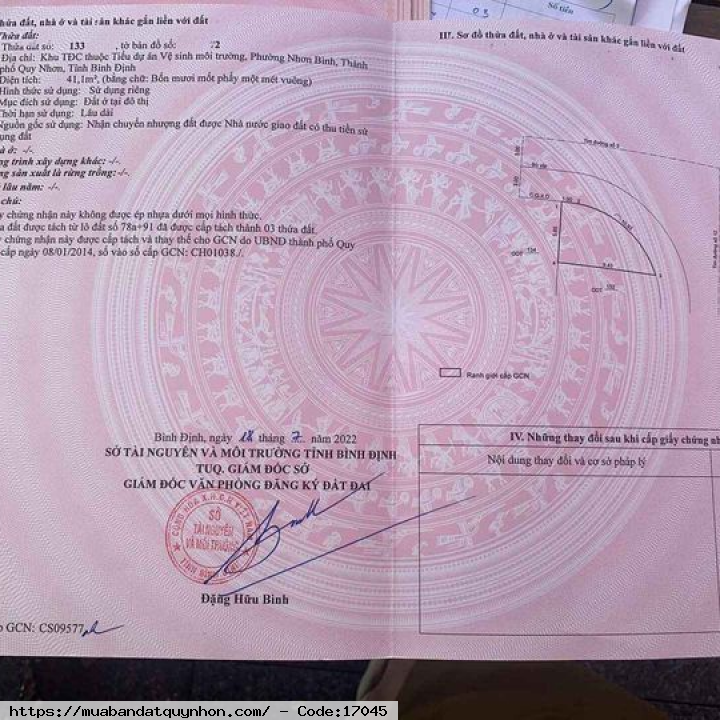 05
Số tiền
hửa đất, nhà ở và tài sản khác gắn liền với đất
Thửa đất:
Thửa đất số: 133 , tờ bản đồ số: 72
Địa chỉ: Khu TĐC thuộc Tiểu dự án Vệ sinh môi trường, Phường Nhơn Bình, Thành
phố Quy Nhơn, Tỉnh Bình Định
Diện tích: 41,1m², (bằng chữ: Bốn mươi mốt phẩy một mét vuông)
Hình thức sử dụng: Sử dụng riêng
Mục đích sử dụng: Đất ở tại đô thị
Thời hạn sử dụng: Lâu dài
Nguồn gốc sử dụng: Nhận chuyển nhượng đất được Nhà nước giao đất có thu tiền sử
ụng đất
à ở: -/-.
ng trình xây dựng khác: -/-.
ng sản xuất là rừng trồng: -/-.
lâu năm: -/-.
chú:
y chứng nhận này không được ép nhựa dưới mọi hình thức.
a đất được tách từ lô đất số 78a+91 đã được cấp tách thành 03 thửa đất.
y chứng nhận này được cấp tách và thay thế cho GCN do UBND thành phố Quy
cấp ngày 08/01/2014, số vào sổ cấp GCN: CH01038./.
Bình Định, ngày 18 tháng 7 năm 2022
SỞ TÀI NGUYÊN VÀ MÔI TRƯỜNG TỈNH BÌNH ĐỊNH
TUQ. GIÁM ĐỐC SỞ
GIÁM ĐỐC VĂN PHÒNG ĐĂNG KÝ ĐẤT ĐAI
CỘNG HÒA X.H.C.N VIỆT NAM
SỞ
TÀI NGUYÊN
VÀ MÔI TRƯỜNG
TỈNH BÌNH ĐỊNH
Đặng Hữu Bình
GCN: CS09577
III. Sơ đồ thửa đất, nhà ở và tài sản khác gắn liền với đất
Ranh giới cấp GCN
IV. Những thay đổi sau khi cấp giấy chứng nh
Nội dung thay đổi và cơ sở pháp lý
https://muabandatquynhon.com/ - Code:17045